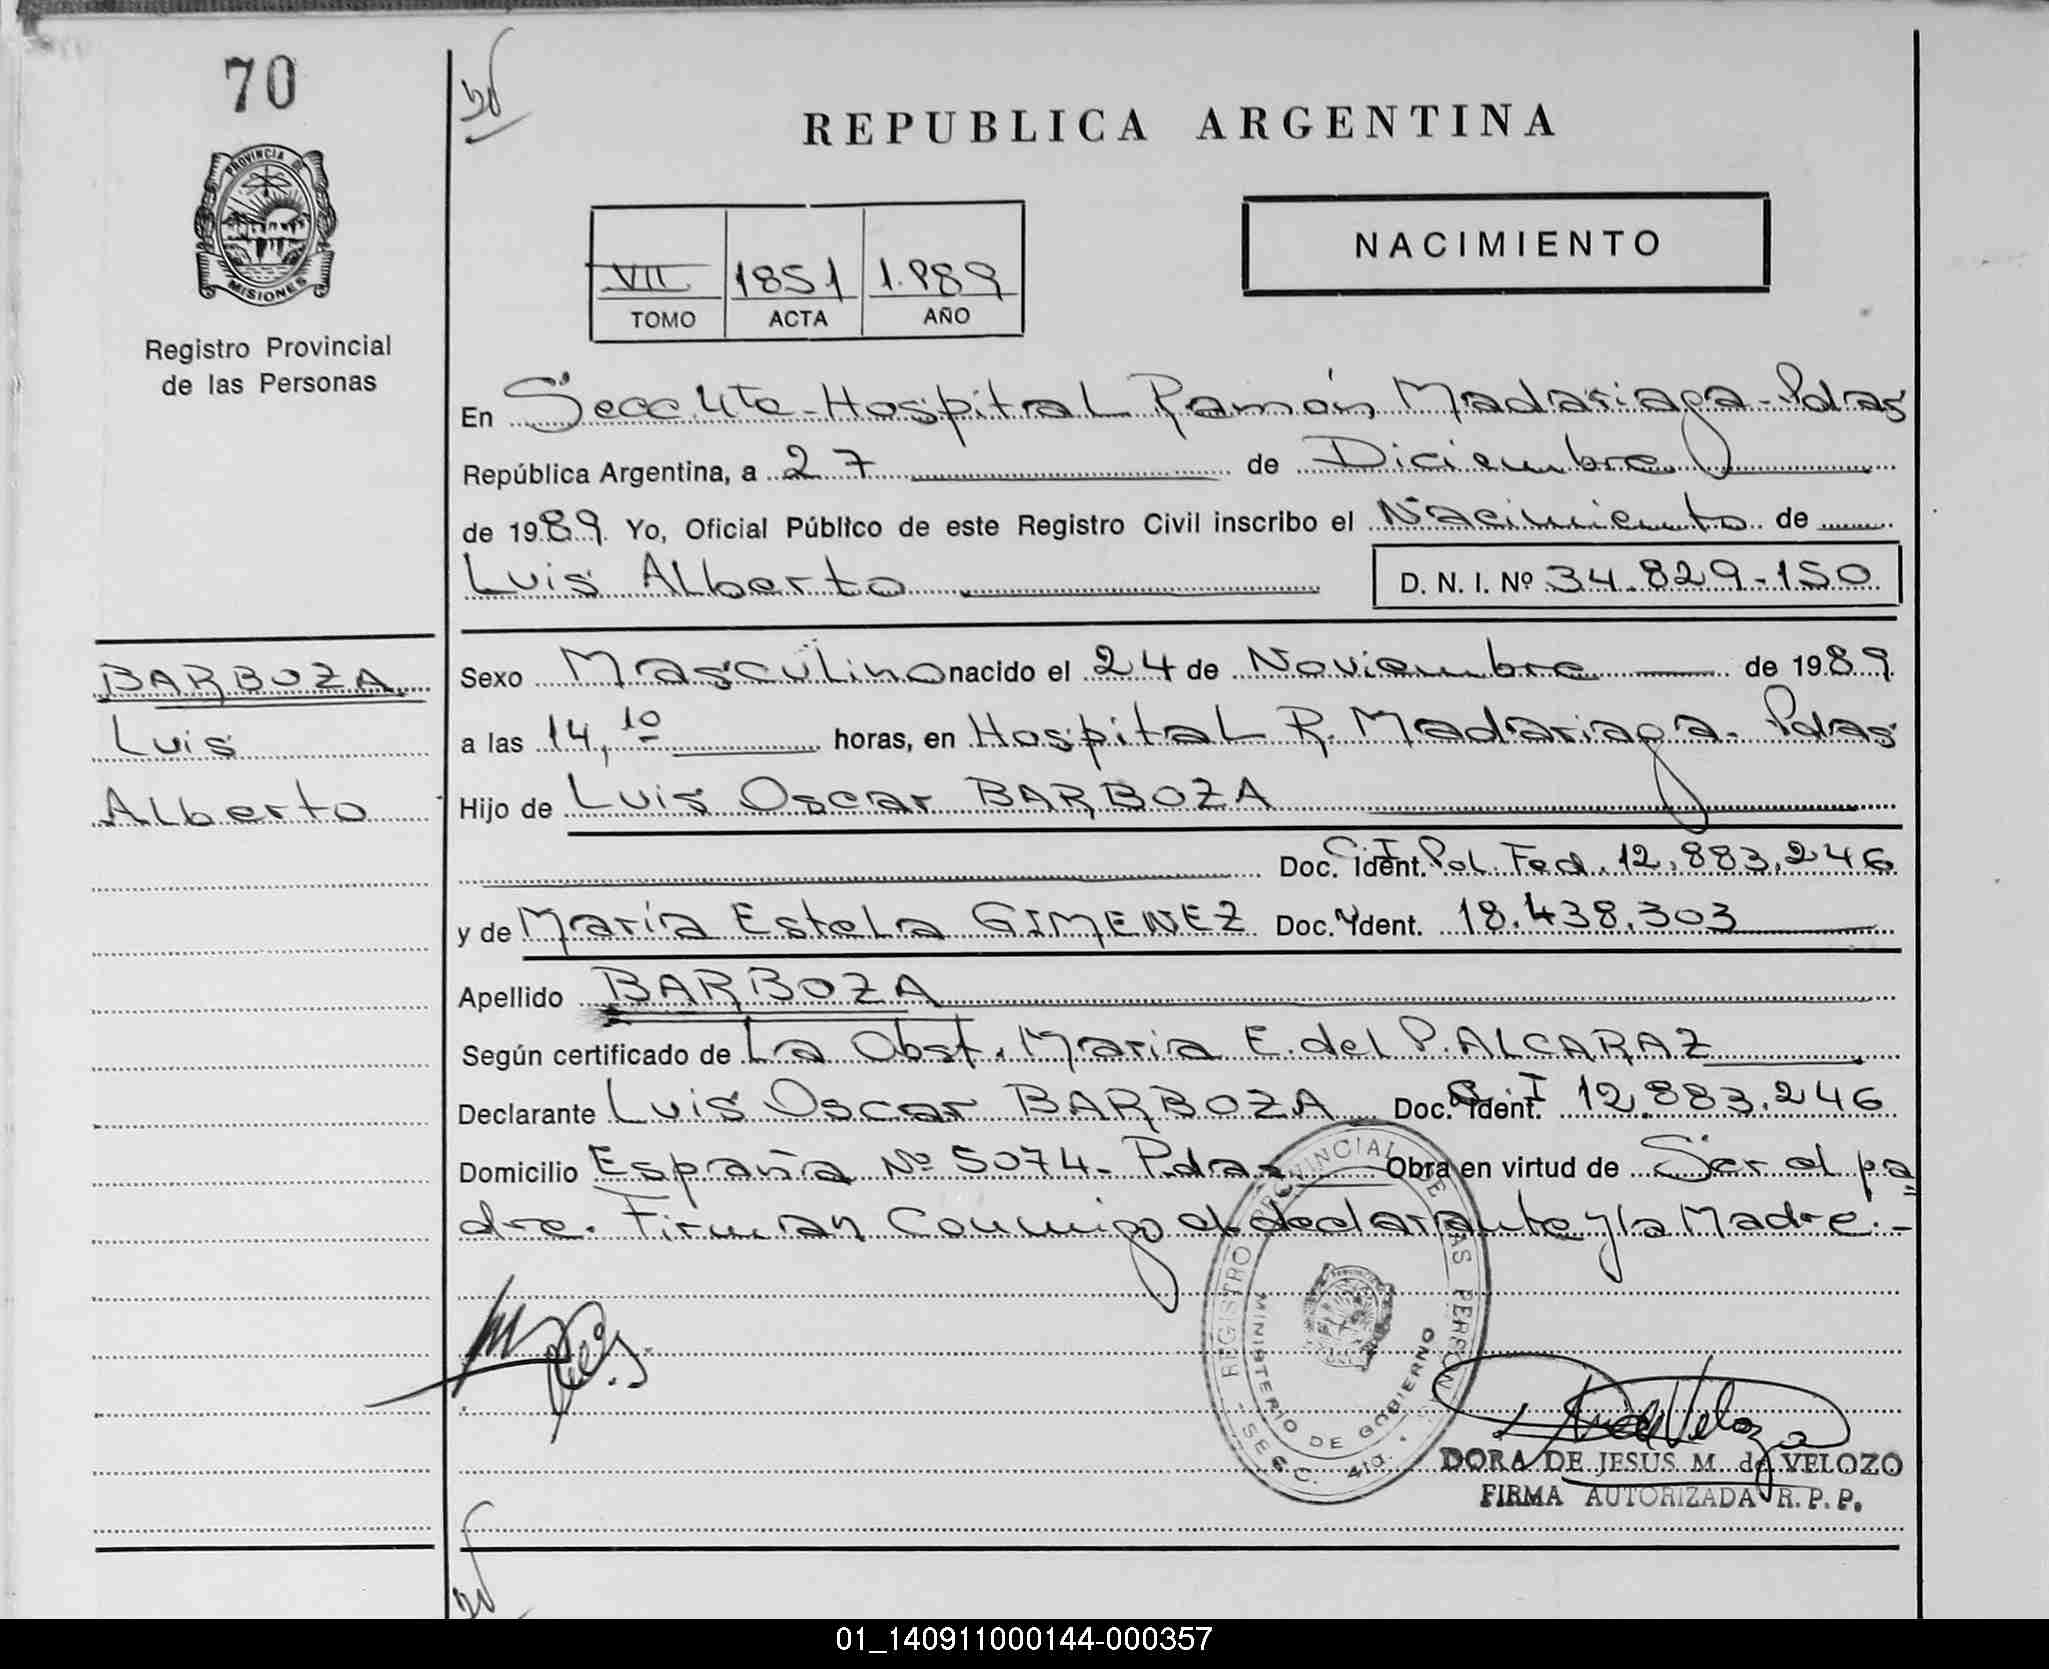 70
PROVINCIA DE
MISIONES
Registro Provincial
de las Personas
REPUBLICA ARGENTINA
NACIMIENTO
VII 1851 1.989
TOMO ACTA AÑO
En Secc 4ta - Hospital Ramón Madariaga - Pdas
República Argentina, a 27 de Diciembre
de 1989. Yo, Oficial Público de este Registro Civil inscribo el Nacimiento de
Luis Alberto D. N. I. Nº 34.829-150
BARBOZA
Luis
Alberto
Sexo Masculino nacido el 24 de Noviembre de 1989
a las 14,10 horas, en Hospital R. Madariaga - Pdas
Hijo de Luis Oscar BARBOZA
Doc. Ident. C.I. Pol. Fed. 12.883.246
y de María Estela GIMENEZ Doc. Ident. 18.438.303
Apellido BARBOZA
Según certificado de La Obst. Maria E. del P. ALCARAZ
Declarante Luis Oscar BARBOZA Doc. Ident. C.I 12.883.246
Domicilio España Nº 5074 - Pdas Obra en virtud de Ser el pa=
dre. Firman Conmigo el declarante y la Madre.-
REGISTRO PROVINCIAL DE LAS PERSONAS
MINISTERIO DE GOBIERNO
- SECC. 4ta. -
DORA DE JESUS M. de VELOZO
FIRMA AUTORIZADA R. P. P.
01_140911000144-000357